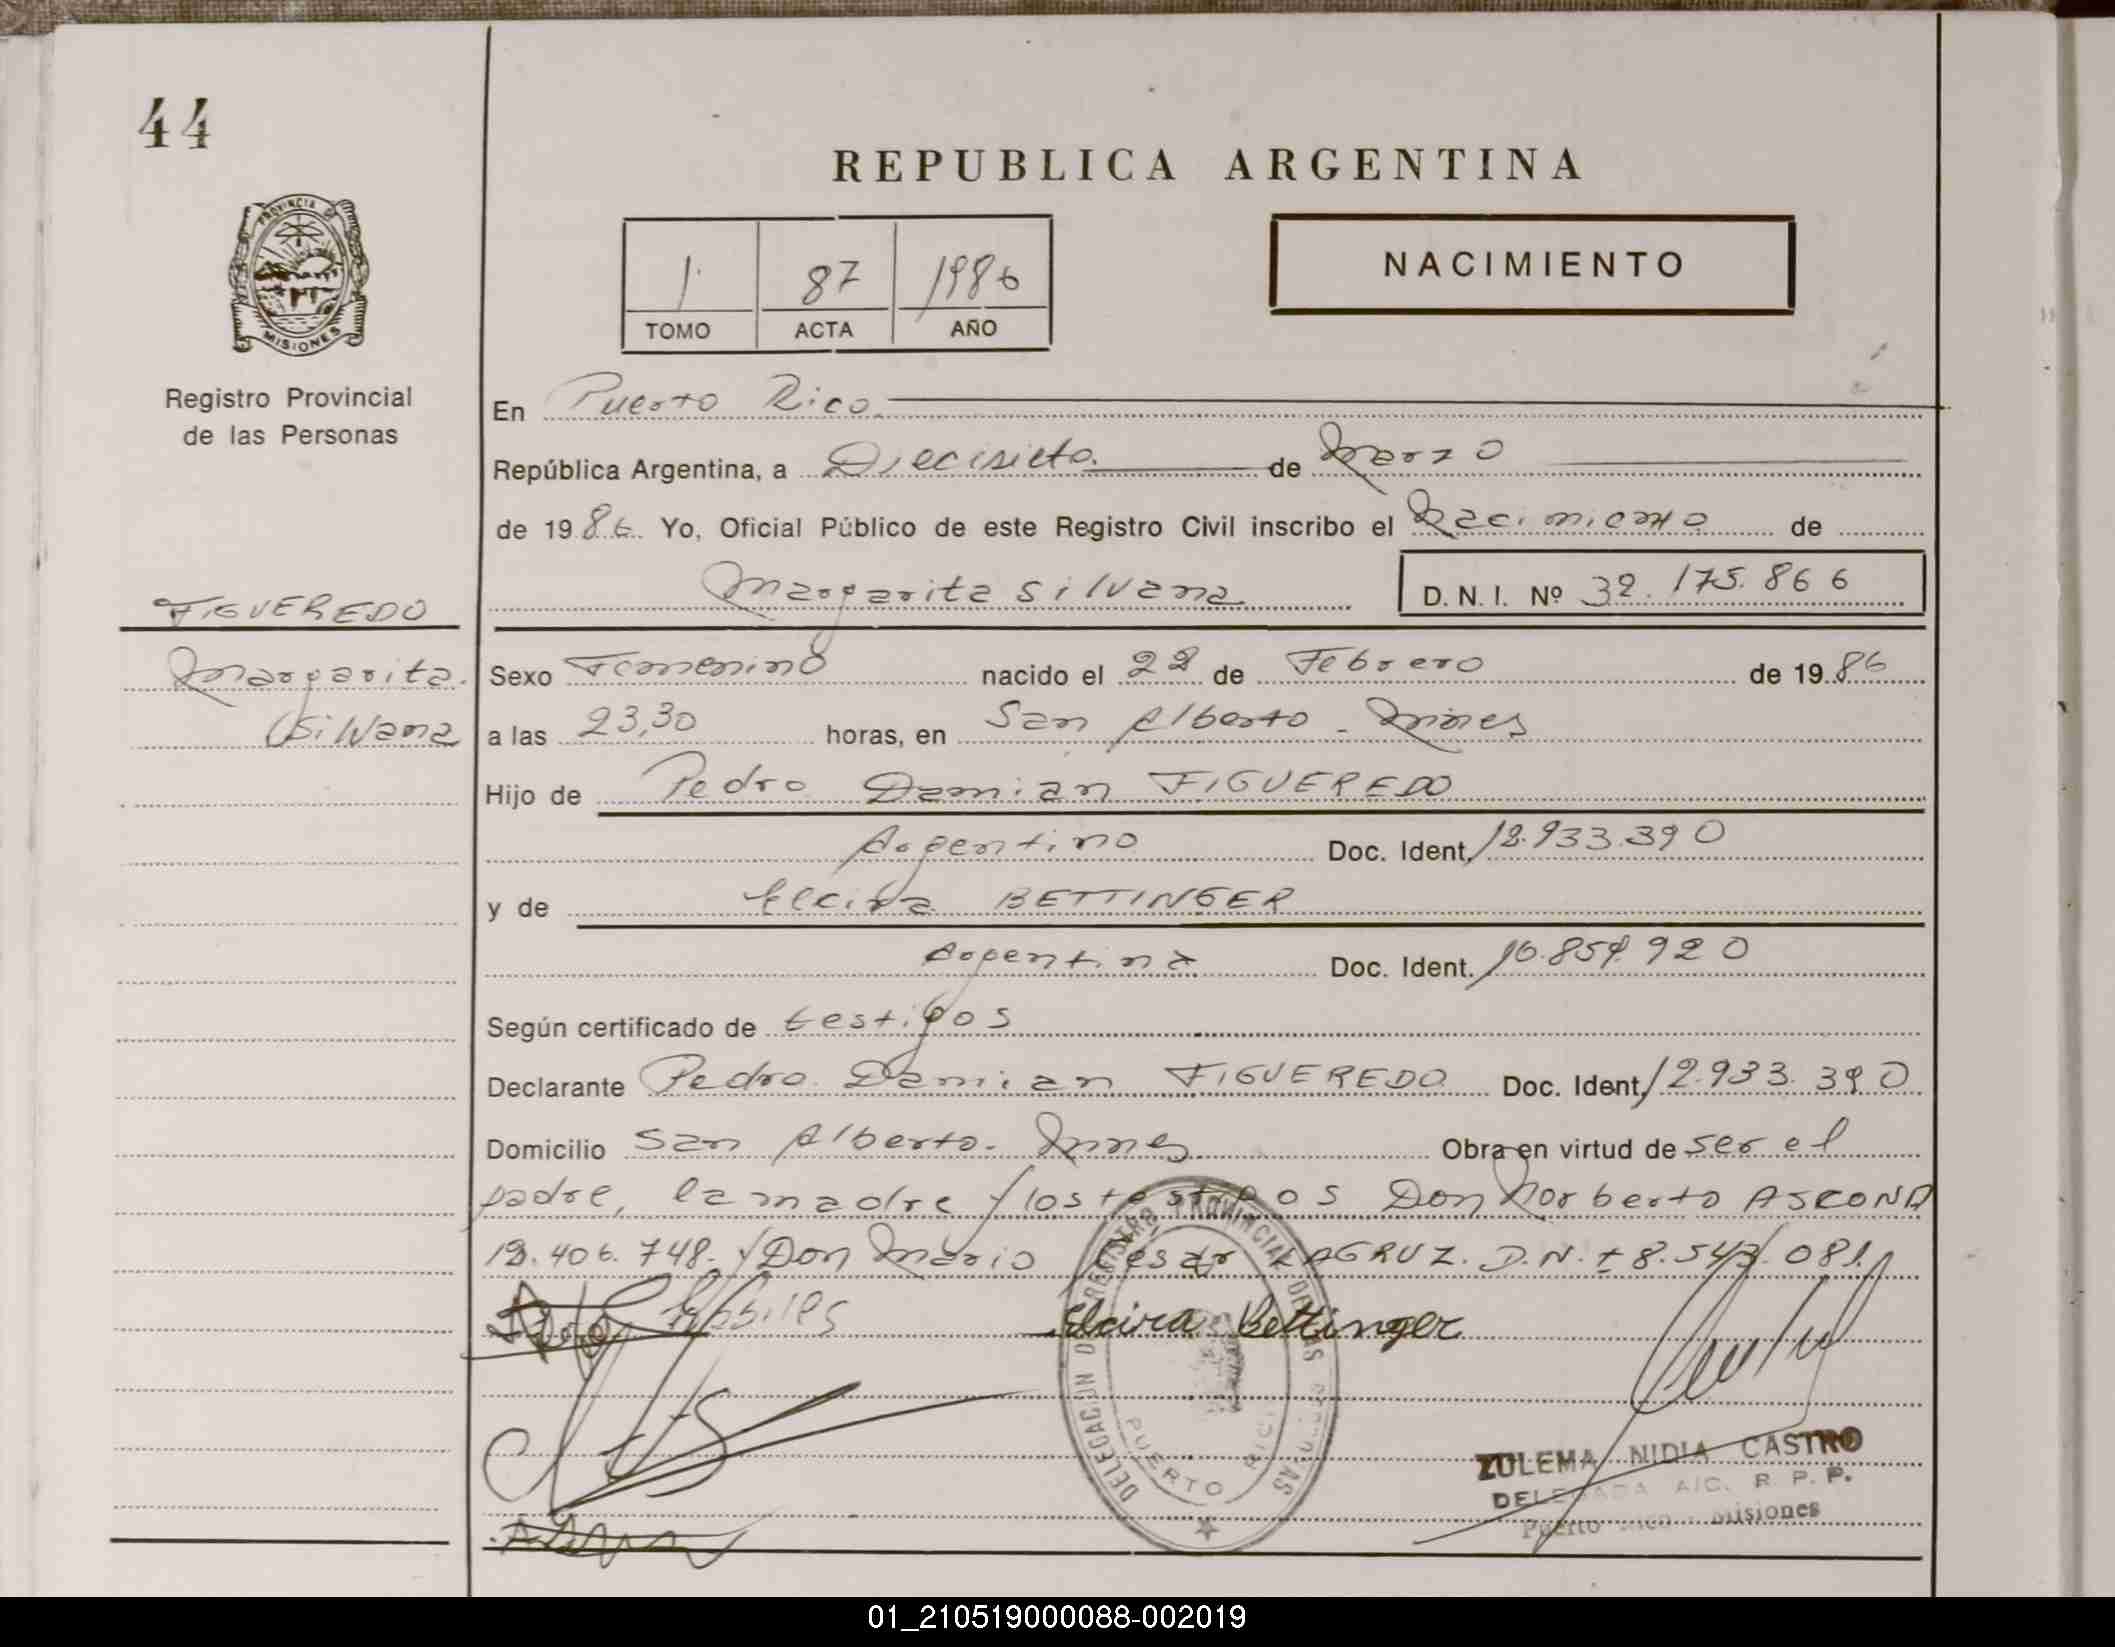 44
REPUBLICA ARGENTINA
PROVINCIA DE
MISIONES
1 87 1986
TOMO ACTA AÑO
NACIMIENTO
Registro Provincial
de las Personas
En Puerto Rico.
República Argentina, a Diecisiete. de Marzo
de 1986. Yo, Oficial Público de este Registro Civil inscribo el Nacimiento de
Margarita Silvana D.N.I. Nº 32.175.866
FIGUEREDO
Margarita
Silvana
Sexo Femenino nacido el 22 de Febrero de 1986
a las 23,30 horas, en San Alberto - Mnes
Hijo de Pedro Damian FIGUEREDO
Argentino Doc. Ident. 12.933.390
y de Elcira BETTINGER
Argentina Doc. Ident. 10.857.920
Según certificado de testigos
Declarante Pedro Damian FIGUEREDO Doc. Ident. 12.933.390
Domicilio San Alberto - Mnes Obra en virtud de ser el
padre, la madre y los testigos Don Norberto ASCONA
406.748. y Don Mario Cesar D.N.I 8.543.081.
Elcira Bettinger
DELEGACION DEL REGISTRO PROVINCIAL DE LAS PERSONAS
PUERTO RICO
ZULEMA NIDIA CASTRO
DELEGADA A/C. R. P. P.
Puerto Rico - Misiones
01_210519000088-002019